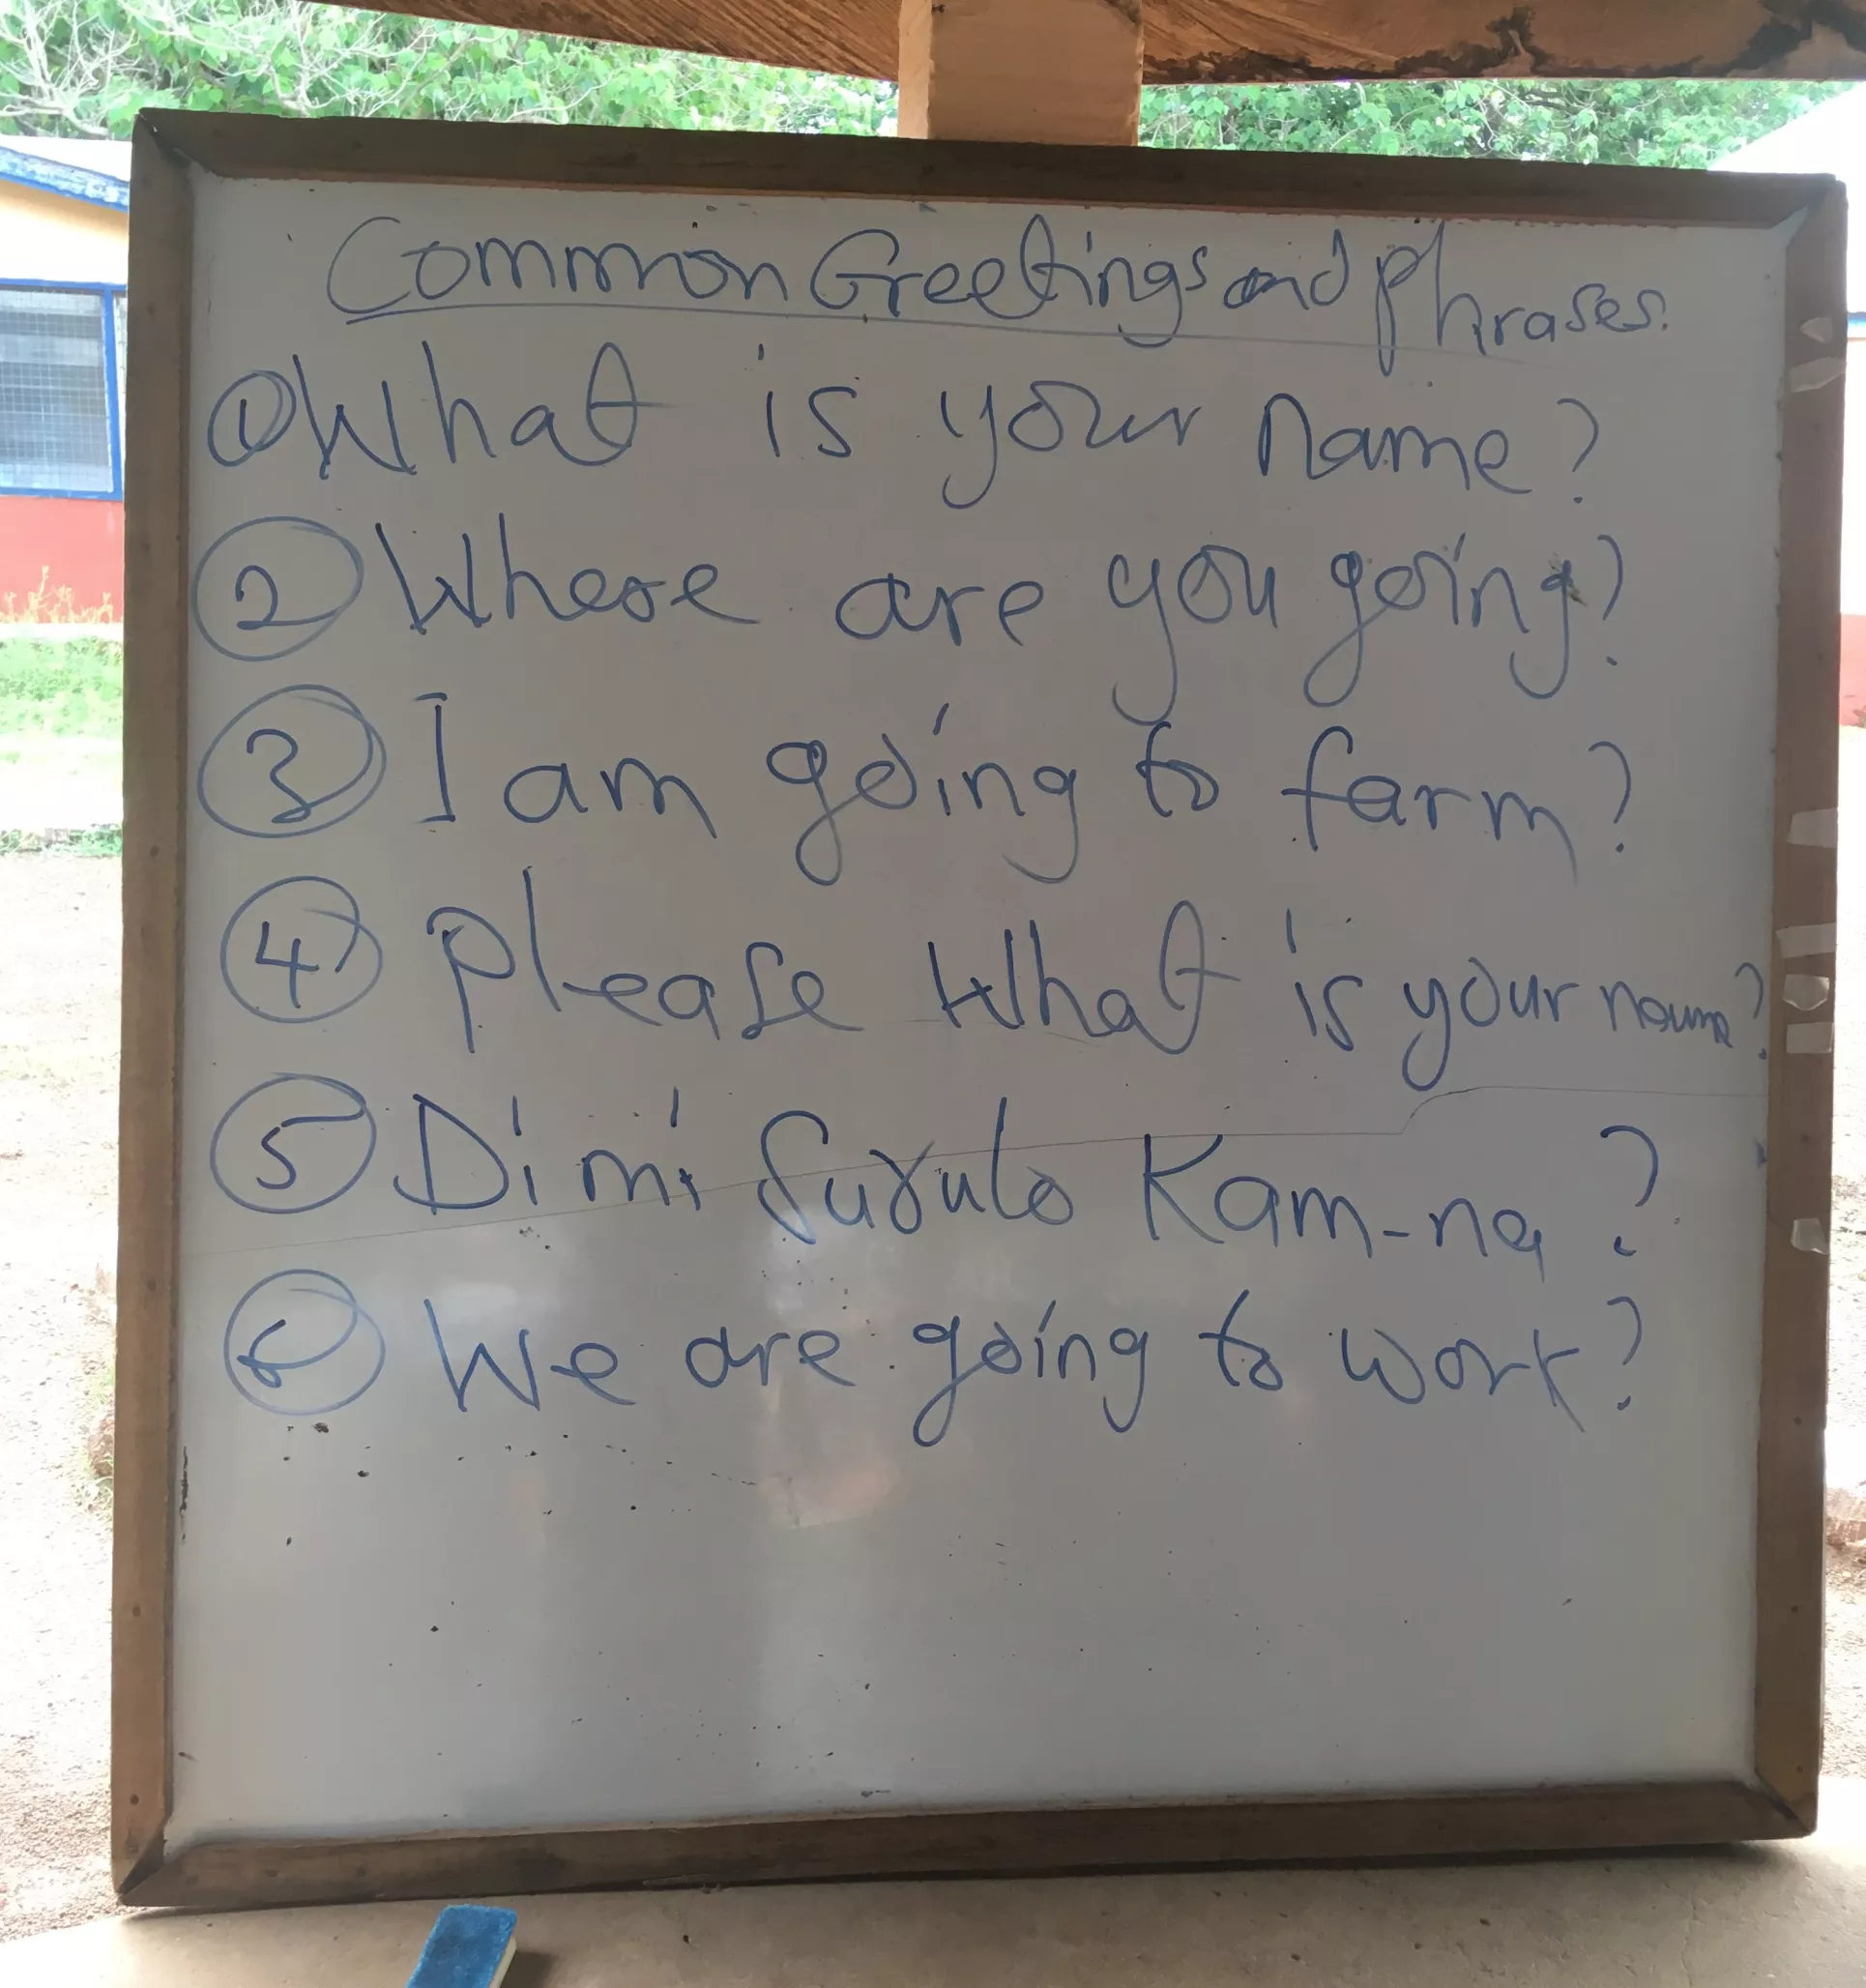 Common Greetings and phrases.
① What is your name?
② Where are you going?
③ I am going to farm?
④ please What is your name?
⑤ Dimi suɣulo Kam-na?
⑥ We are going to work?